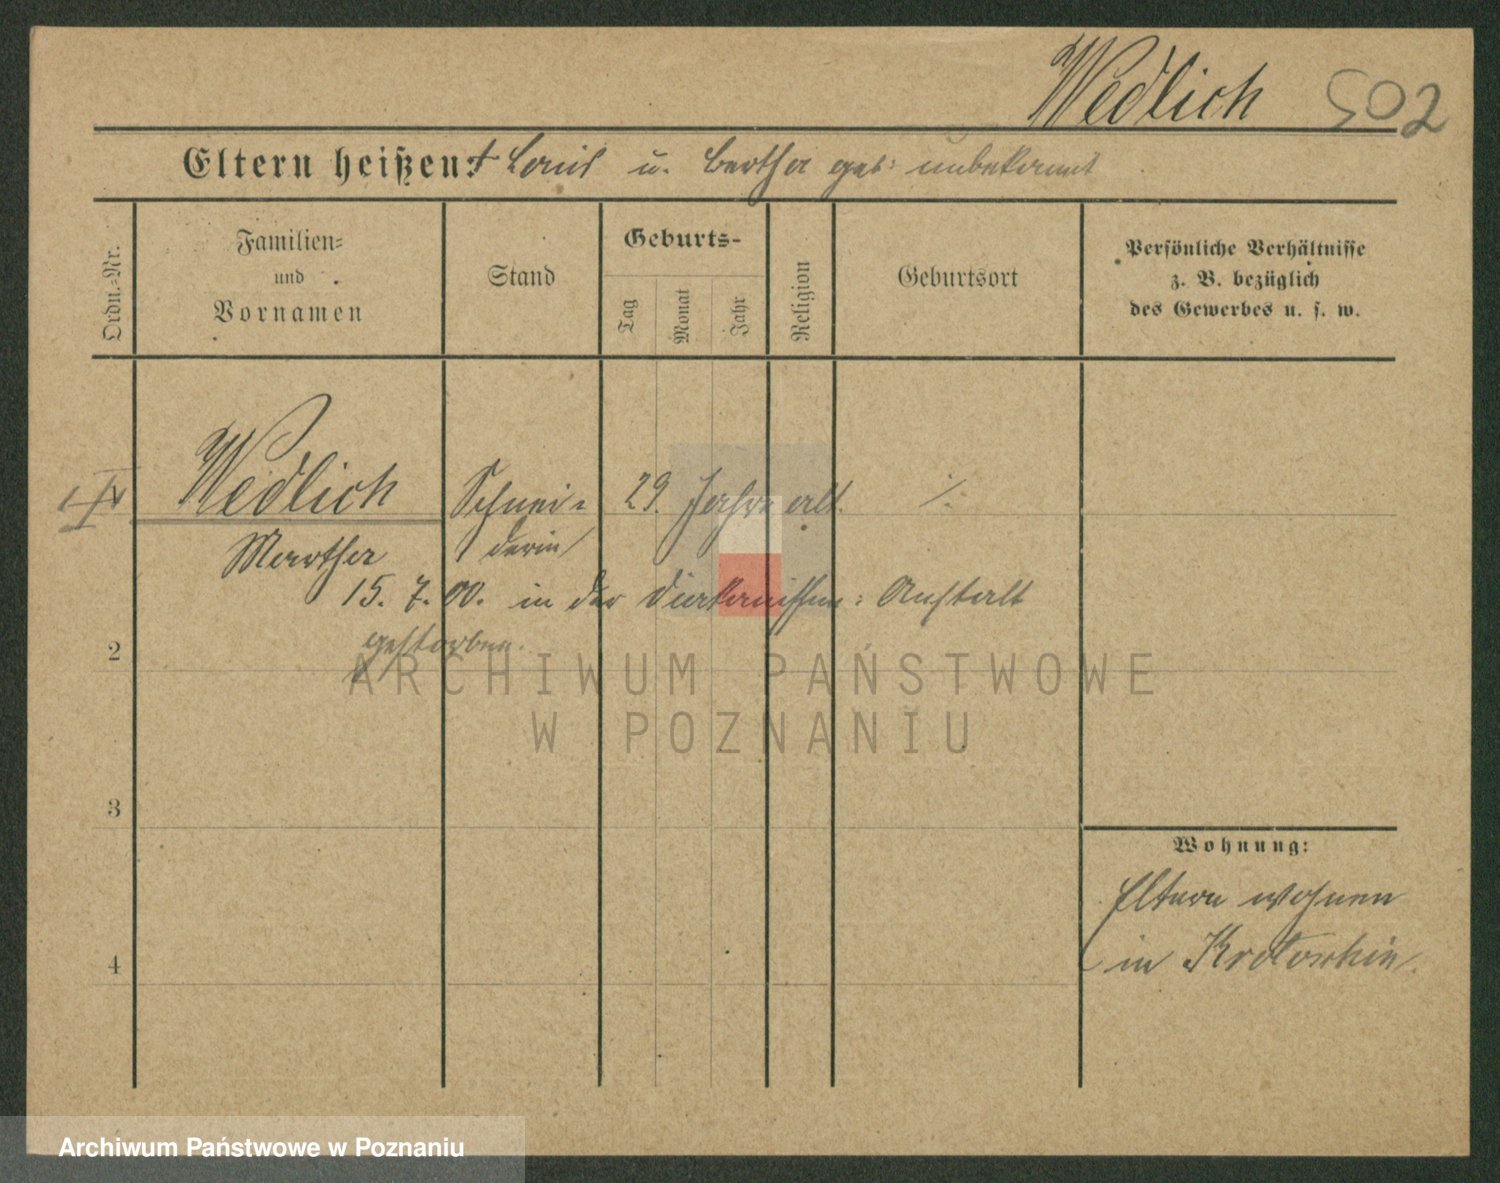 Wedlich 502
Eltern heißen: † Louis u. Bertha geb: unbekannt
Ordn.-Nr.
Familien-
und
Vornamen
Stand
Geburts-
Tag
Monat
Jahr
Religion
Geburtsort
Persönliche Verhältnisse
z. B. bezüglich
des Gewerbes u. s. w.
Wedlich Schnei- 29. Jahre alt. ·/.
Martha derin
15. 7. 00. in der Diakonissen: Anstalt
gestorben.
2
3
4
Wohnung:
Eltern wohnen
in Krotoschin.
ARCHIWUM PAŃSTWOWE
W POZNANIU
Archiwum Państwowe w Poznaniu